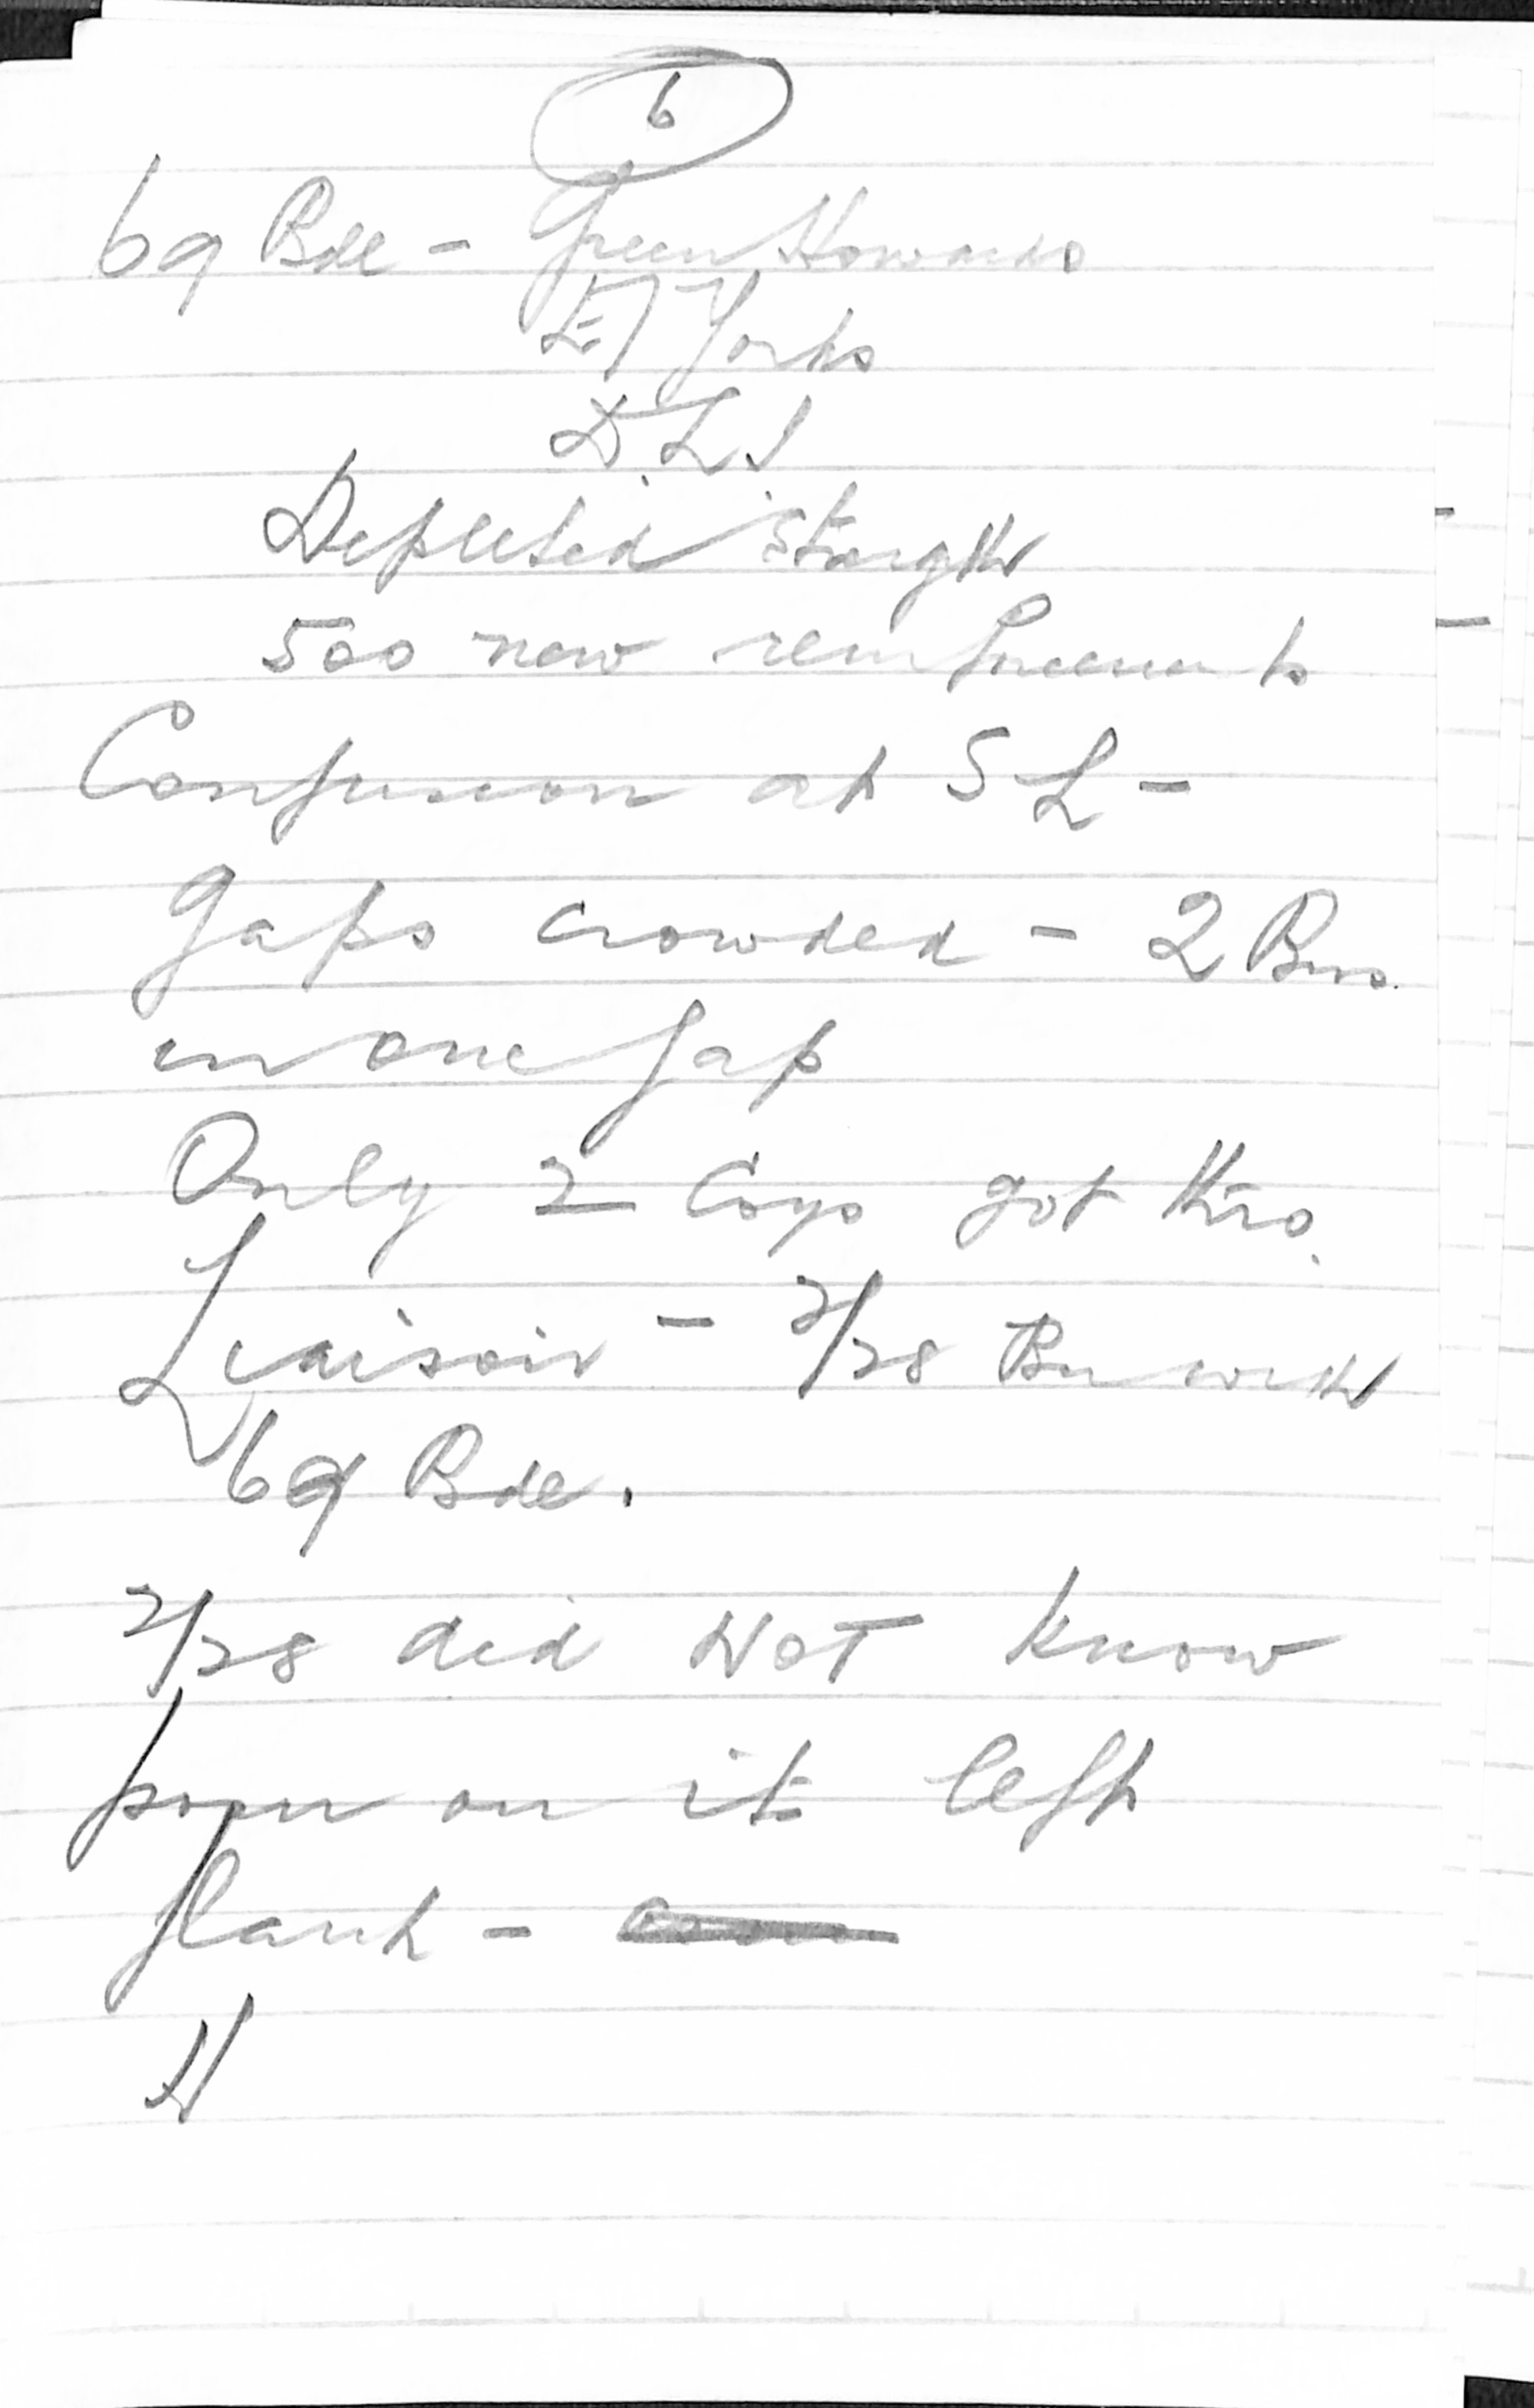 6
69 Bde - Green Howards
E/Yorks
D.L.I
Depleted strength
500 new reinforcements
Confusion at S L -
gaps crowded - 2 Bns.
in one gap
Only 2 Coys got thro.
Liaison - 2/28 Bn with
69 Bde.
2/28 did NOT know
posn on it left
flank -